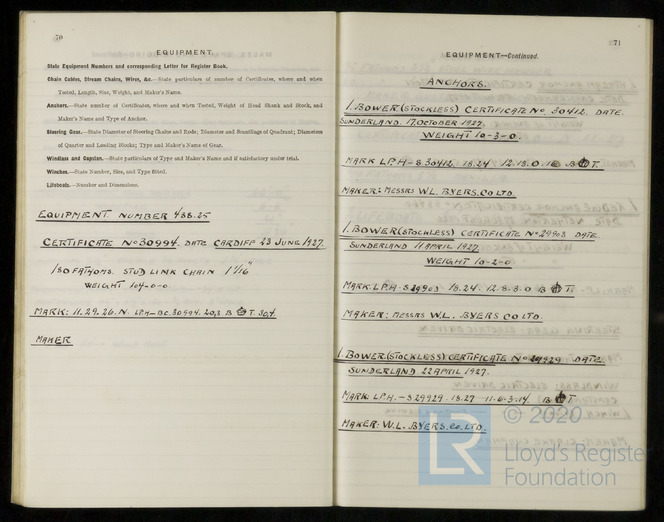 70
EQUIPMENT.
State Equipment Numbers and corresponding Letter for Register Book.
Chain Cables, Stream Chains, Wires, &c.—State particulars of number of Certificates, where and when
Tested, Length, Size, Weight, and Maker's Name.
Anchors.—State number of Certificates, where and when Tested, Weight of Head Shank and Stock, and
Maker's Name and Type of Anchor.
Steering Gear.—State Diameter of Steering Chains and Rods; Diameter and Scantlings of Quadrant; Diameters
of Quarter and Leading Blocks; Type and Maker's Name of Gear.
Windlass and Capstan.—State particulars of Type and Maker's Name and if satisfactory under trial.
Winches.—State Number, Size, and Type fitted.
Lifeboats.—Number and Dimensions.
EQUIPMENT NUMBER 488.25
CERTIFICATE No 30994. DATE CARDIFF 23 JUNE 1927.
150 FATHOMS STUD LINK CHAIN 1 1/16"
WEIGHT 104-0-0
MARK: 11.29.26.N. LPH-BC.30994. 20,3 B T. 30,4
MAKER
71
EQUIPMENT—Continued.
ANCHORS.
1. BOWER (STOCKLESS) CERTIFICATE No 30412. DATE.
SUNDERLAND. 17. OCTOBER 1927.
WEIGHT 10-3-0.
MARK L.P.H-S.30412. 18.24 12.13.0.16 B T.
MAKER: MESSRS W.L. BYERS. CO LTD.
1. BOWER (STOCKLESS) CERTIFICATE No 29903 DATE
SUNDERLAND 11 APRIL 1927.
WEIGHT 10-2-0.
MARK. L.P.H-S29903 18.24. 12.8.3.0 B T.
MAKER: MESSRS W.L. BYERS CO LTD.
1. BOWER (STOCKLESS) CERTIFICATE No 29929 DATE
SUNDERLAND 22 APRIL 1927.
MARK L.P.H.-S29929. 18.27 -11.6.3.14. B T.
MAKER: W.L. BYERS. CO. LTD.
© 2020
LR
Lloyd's Register
Foundation